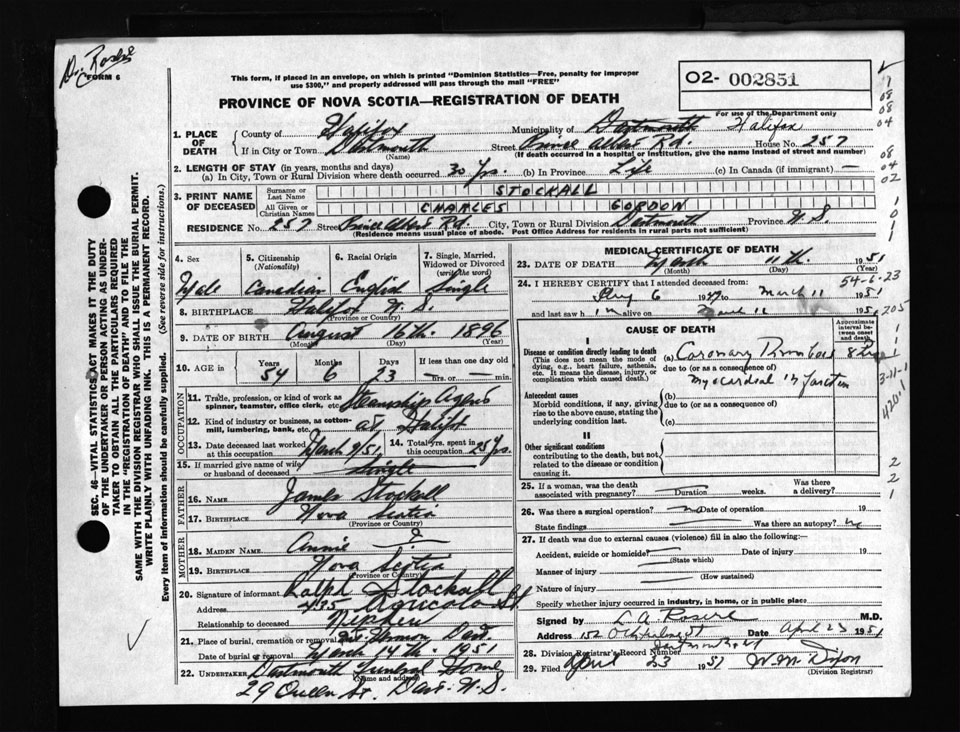 FORM 6
This form, if placed in an envelope, on which is printed "Dominion Statistics—Free, penalty for improper
use $300," and properly addressed will pass through the mail "FREE"
O2- 002851
For use of the Department only
PROVINCE OF NOVA SCOTIA—REGISTRATION OF DEATH
1. PLACE OF DEATH
County of Halifax Municipality of Dartmouth Halifax
If in City or Town Dartmouth (Name) Street Prince Albert Rd. House No. 257
(If death occurred in a hospital or institution, give the name instead of street and number)
2. LENGTH OF STAY (in years, months and days)
(a) In City, Town or Rural Division where death occurred 30 yrs. (b) In Province Life (c) In Canada (if immigrant) —
3. PRINT NAME OF DECEASED
Surname or Last Name STOCKALL
All Given or Christian Names CHARLES GORDON
RESIDENCE No. 257 Street Prince Albert Rd. City, Town or Rural Division Dartmouth Province N.S.
(Residence means usual place of abode. Post Office Address for residents in rural parts not sufficient)
4. Sex Male
5. Citizenship (Nationality) Canadian
6. Racial Origin English
7. Single, Married, Widowed or Divorced (write the word) Single
8. BIRTHPLACE Halifax N.S.
(Province or Country)
9. DATE OF BIRTH August 16th. 1896
(Month) (Day) (Year)
10. AGE Years 54 Months 6 Days 23 If less than one day old — hrs. or — min.
OCCUPATION
11. Trade, profession, or kind of work as spinner, teamster, office clerk, etc. Steamship Agent
12. Kind of industry or business, as cotton-mill, lumbering, bank, etc.
13. Date deceased last worked at this occupation March 9/51
14. Total yrs. spent in this occupation 25 yrs.
15. If married give name of wife or husband of deceased Single
FATHER
16. NAME James Stockall
17. BIRTHPLACE Nova Scotia
(Province or Country)
MOTHER
18. MAIDEN NAME Annie ?
19. BIRTHPLACE Nova Scotia
(Province or Country)
20. Signature of informant Ralph Stockall
Address 435 Agricola St.
Relationship to deceased Nephew
21. Place of burial, cremation or removal Mt. Hermon, Dart.
Date of burial or removal March 14th. 1951
22. UNDERTAKER Dartmouth Funeral Home
(Name and address)
29 Queen St. Dart. N.S.
MEDICAL CERTIFICATE OF DEATH
23. DATE OF DEATH March 11th. 1951
(Month) (Day) (Year)
54-6-23
24. I HEREBY CERTIFY that I attended deceased from:
6 to March 11 1951
and last saw h im alive on March 11 1951
CAUSE OF DEATH
Approximate interval between onset and death
I
Disease or condition directly leading to death
(This does not mean the mode of dying, e.g., heart failure, asthenia, etc. It means the disease, injury, or complication which caused death.)
(a) Coronary Thrombosis
due to (or as a consequence of)
Myocardial Infarction
Antecedent causes
Morbid conditions, if any, giving rise to the above cause, stating the underlying condition last.
(b)
due to (or as a consequence of)
(c)
II
Other significant conditions
contributing to the death, but not related to the disease or condition causing it.
3-11-1
4201
25. If a woman, was the death associated with pregnancy? — Duration weeks. Was there a delivery?
26. Was there a surgical operation? no Date of operation 19
State findings Was there an autopsy? no
27. If death was due to external causes (violence) fill in also the following:—
Accident, suicide or homicide? Date of injury 19
(State which)
Manner of injury
(How sustained)
Nature of injury
Specify whether injury occurred in industry, in home, or in public place
Signed by M.D.
Address 152 Date April 23 1951
28. Division Registrar's Record Number
29. Filed April 23 1951 W.M. Dixon
(Division Registrar)
SEC. 46—VITAL STATISTICS ACT MAKES IT THE DUTY
OF THE UNDERTAKER OR PERSON ACTING AS UNDER-
TAKER TO OBTAIN ALL THE PARTICULARS REQUIRED
IN THE "REGISTRATION OF DEATH" AND TO FILE THE
SAME WITH THE DIVISION REGISTRAR WHO SHALL ISSUE THE BURIAL PERMIT.
WRITE PLAINLY WITH UNFADING INK. THIS IS A PERMANENT RECORD.
Every item of information should be carefully supplied. (See reverse side for instructions.)